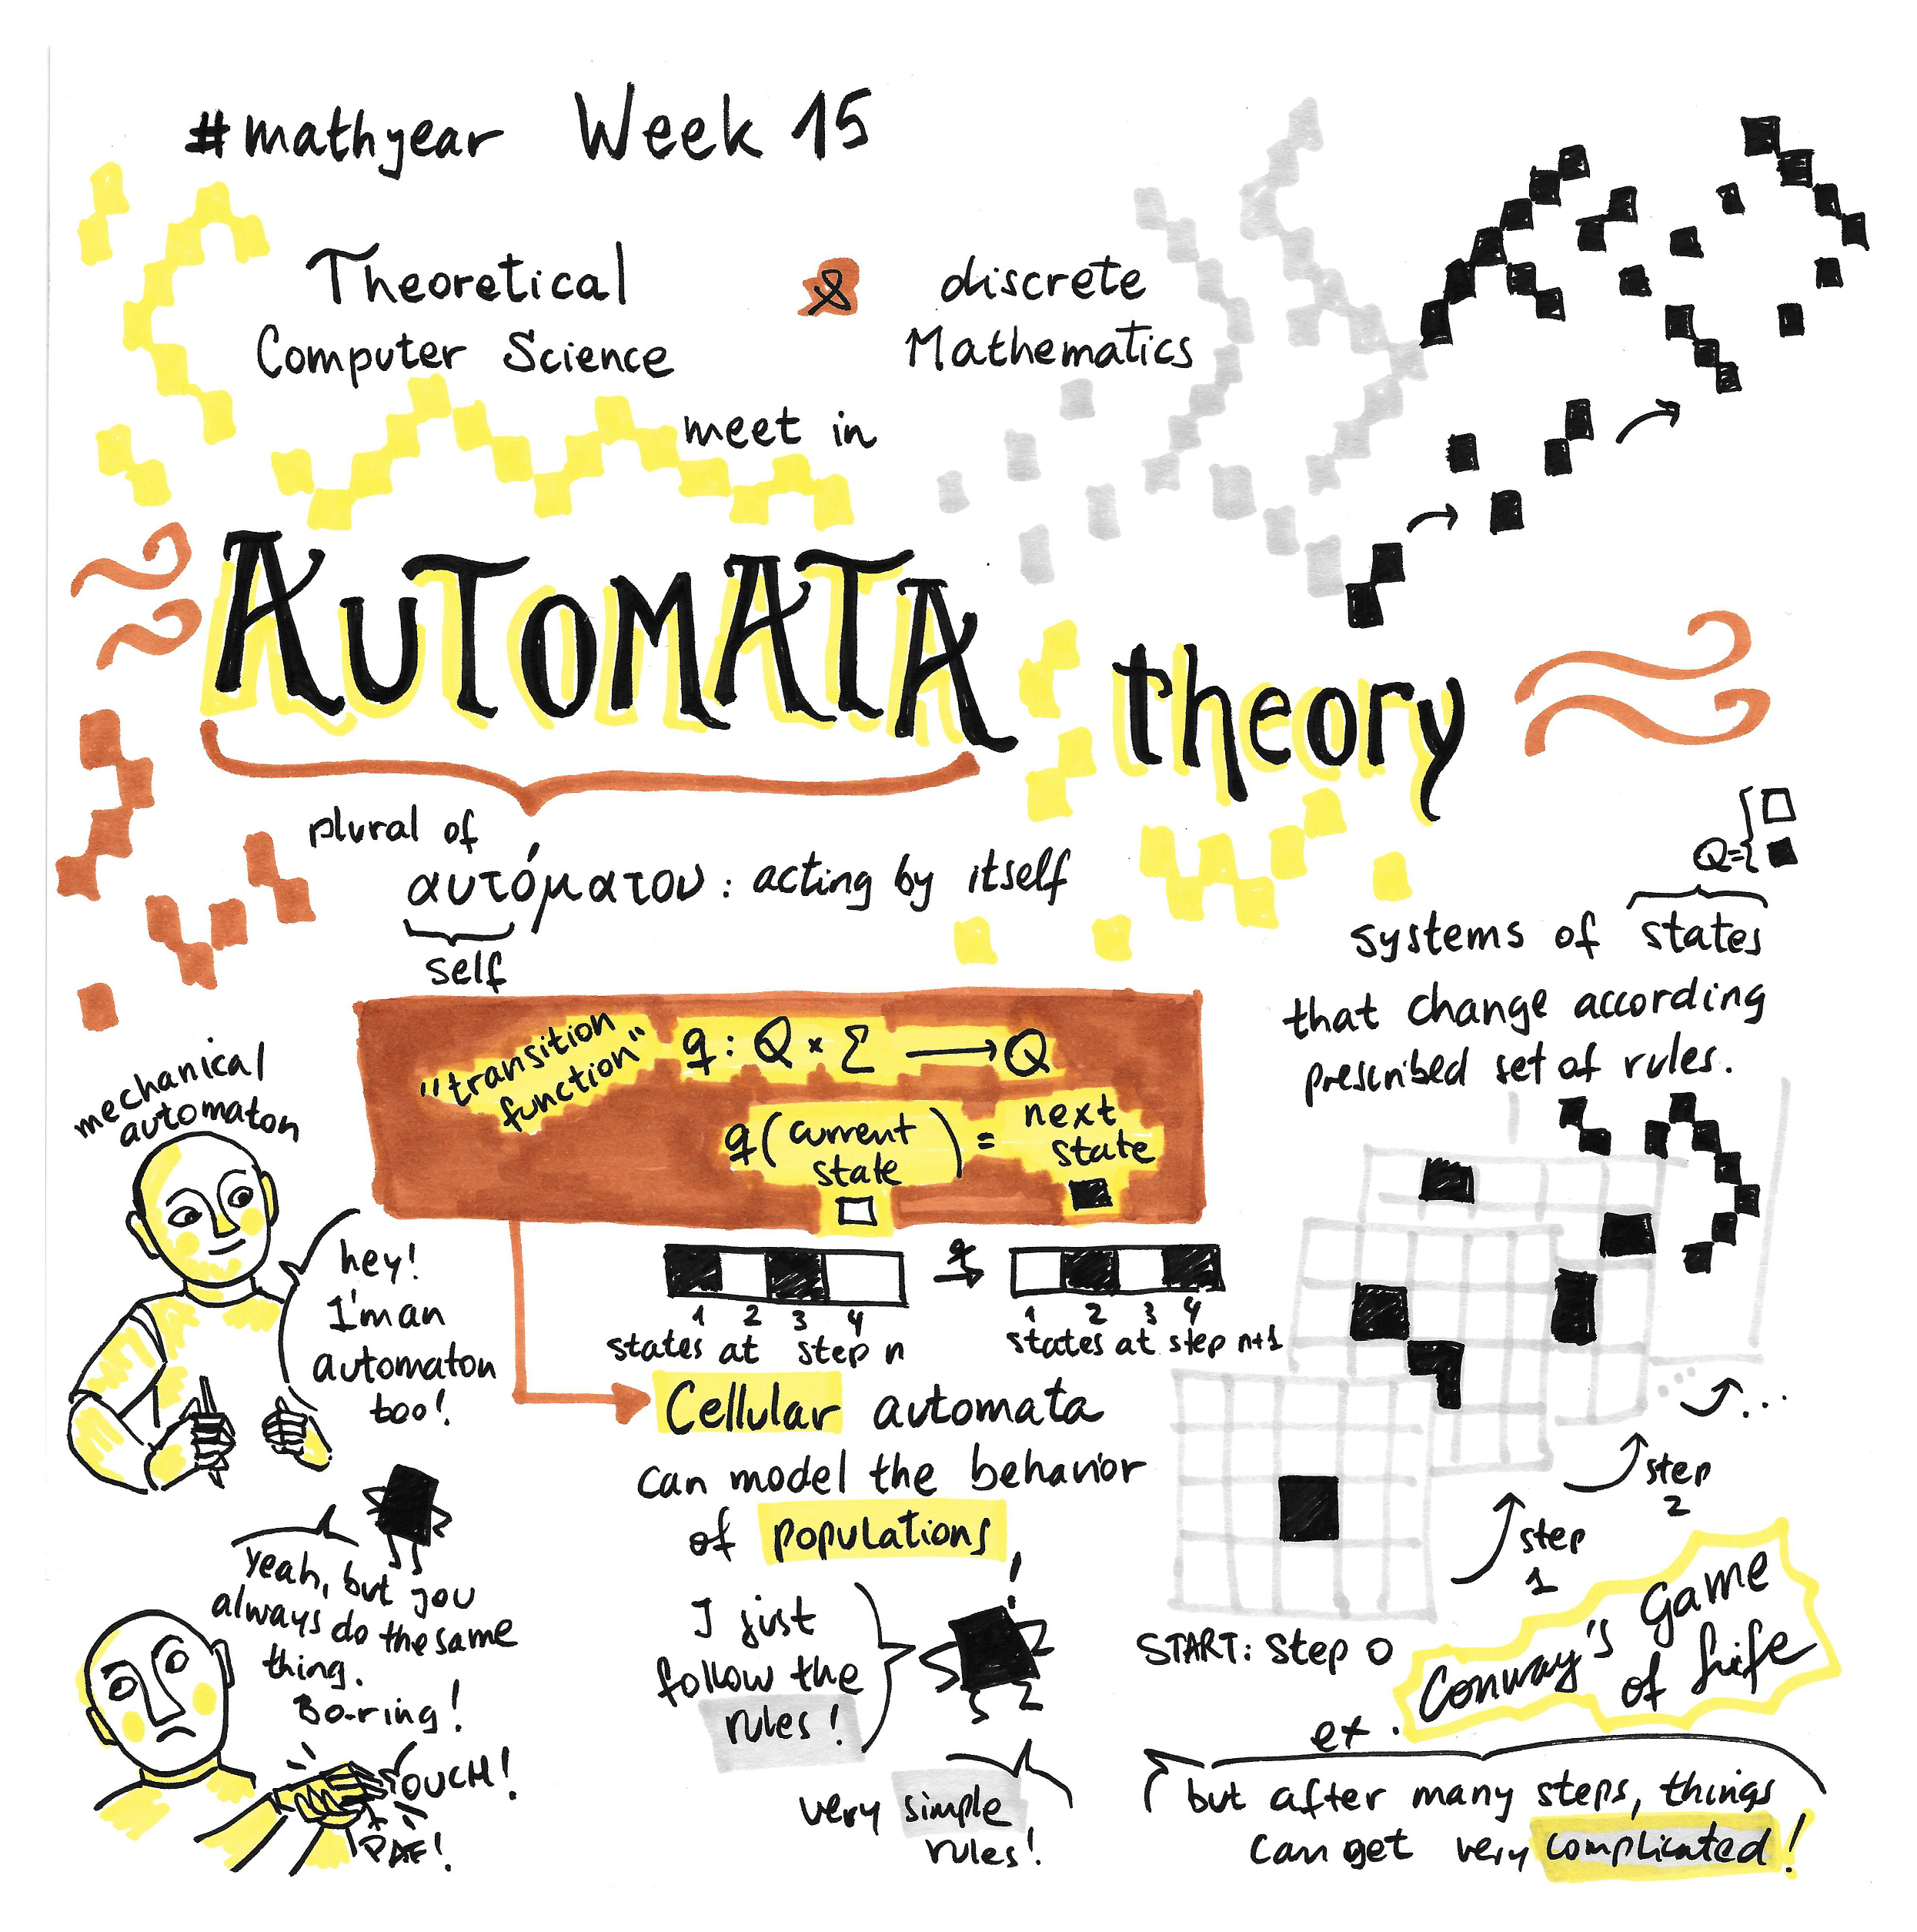 #mathyear Week 15
Theoretical
Computer Science
&
discrete
Mathematics
meet in
AUTOMATA theory
plural of
αυτόματου: acting by itself
self
Q={
systems of states
that change according
prescribed set of rules.
"transition
function"
q: Q × Σ → Q
q(current
state) = next
state
mechanical
automaton
hey!
I'm an
automaton
too!
q
1 2 3 4
states at step n
1 2 3 4
states at step n+1
Cellular automata
can model the behavior
of populations
yeah, but you
always do the same
thing.
Bo-ring!
OUCH!
PAF!
I just
follow the
rules!
very simple
rules!
START: Step 0
step
1
step
2
...
ex. Conway's Game
of Life
but after many steps, things
can get very complicated!